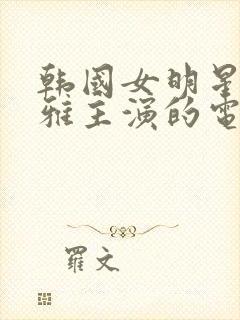 韩国女明星
雅主演的电
羅文